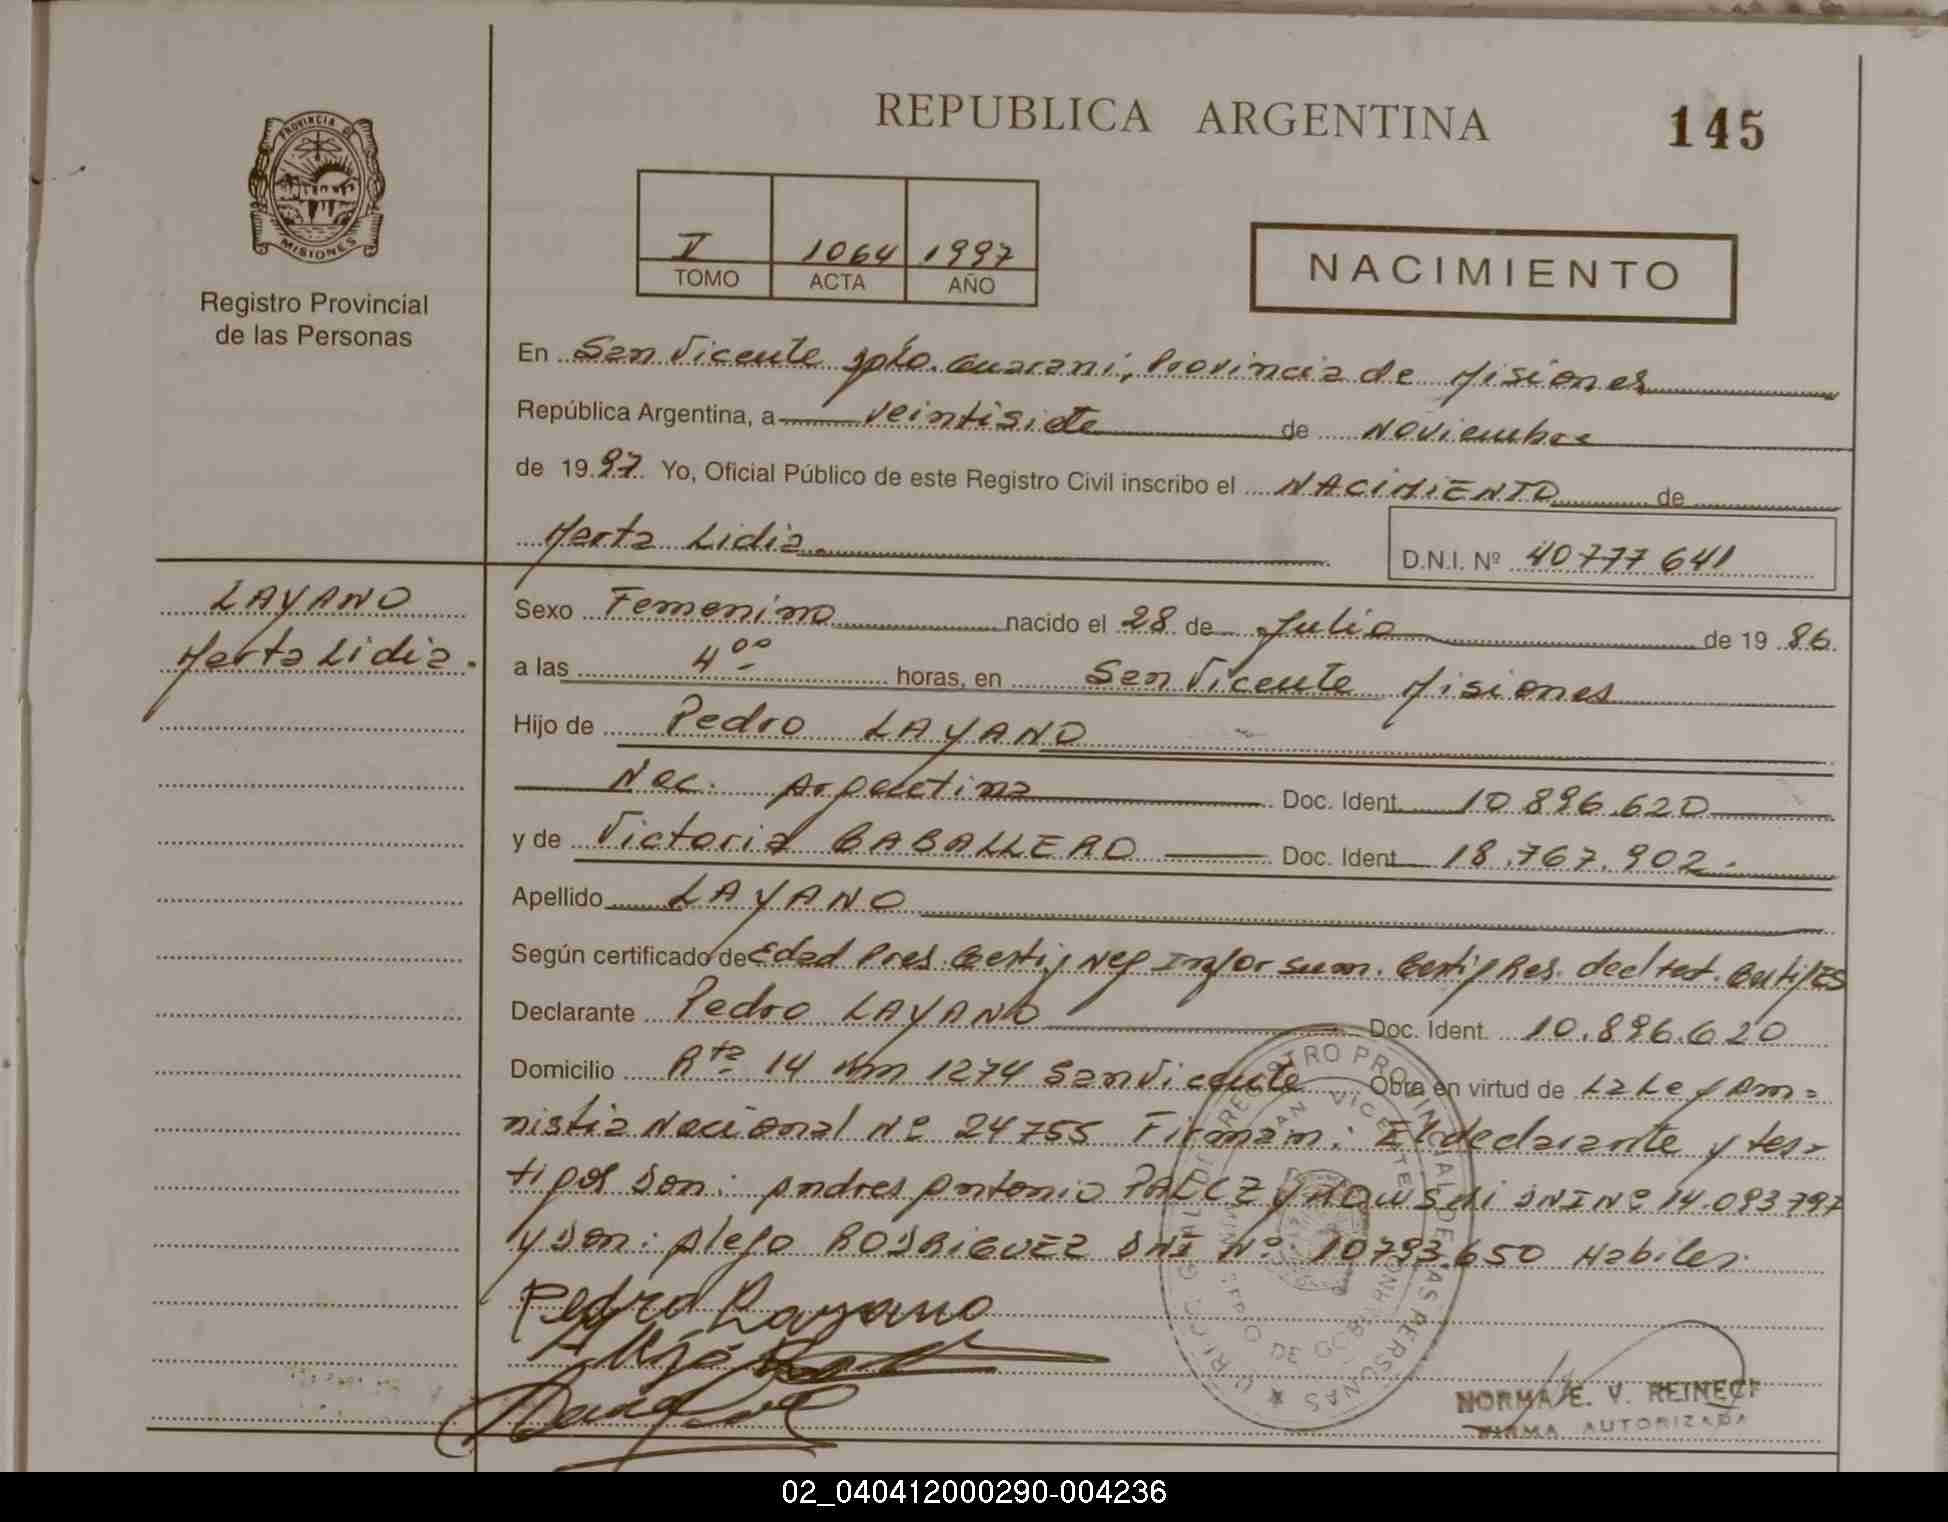 REPUBLICA ARGENTINA
145
PROVINCIA DE
MISIONES
Registro Provincial
de las Personas
V 1064 1997
TOMO ACTA AÑO
NACIMIENTO
En San Vicente Dpto. Guarani, Provincia de Misiones
República Argentina, a veintisiete de Noviembre
de 1997 Yo, Oficial Público de este Registro Civil inscribo el NACIMIENTO de
Marta Lidia.
D.N.I. Nº 40777641
LAYANO
Marta Lidia.
Sexo Femenino nacido el 28 de Julio de 1986.
a las 4⁰⁰ horas, en San Vicente Misiones
Hijo de Pedro LAYANO
Nac. Argentina Doc. Ident. 10.896.620
y de Victoria CABALLERO Doc. Ident. 18.767.902.
Apellido LAYANO
Según certificado de Edad Pres. Certif Neg Infor sum. Certif Res. decl test.
Declarante Pedro LAYANO Doc. Ident. 10.896.620
Domicilio Rta 14 Km 1274 San Vicente Obra en virtud de La Ley Am=
nistia Nacional Nº 24755 Firman: El declarante y tes=
tigos Don: Andres Antonio DNI Nº 14.093797
y Don: Alejo RODRIGUEZ DNI Nº 10793.650 Habiles.
Pedro Layano
NORMA E. V. REINECK
FIRMA AUTORIZADA
02_040412000290-004236